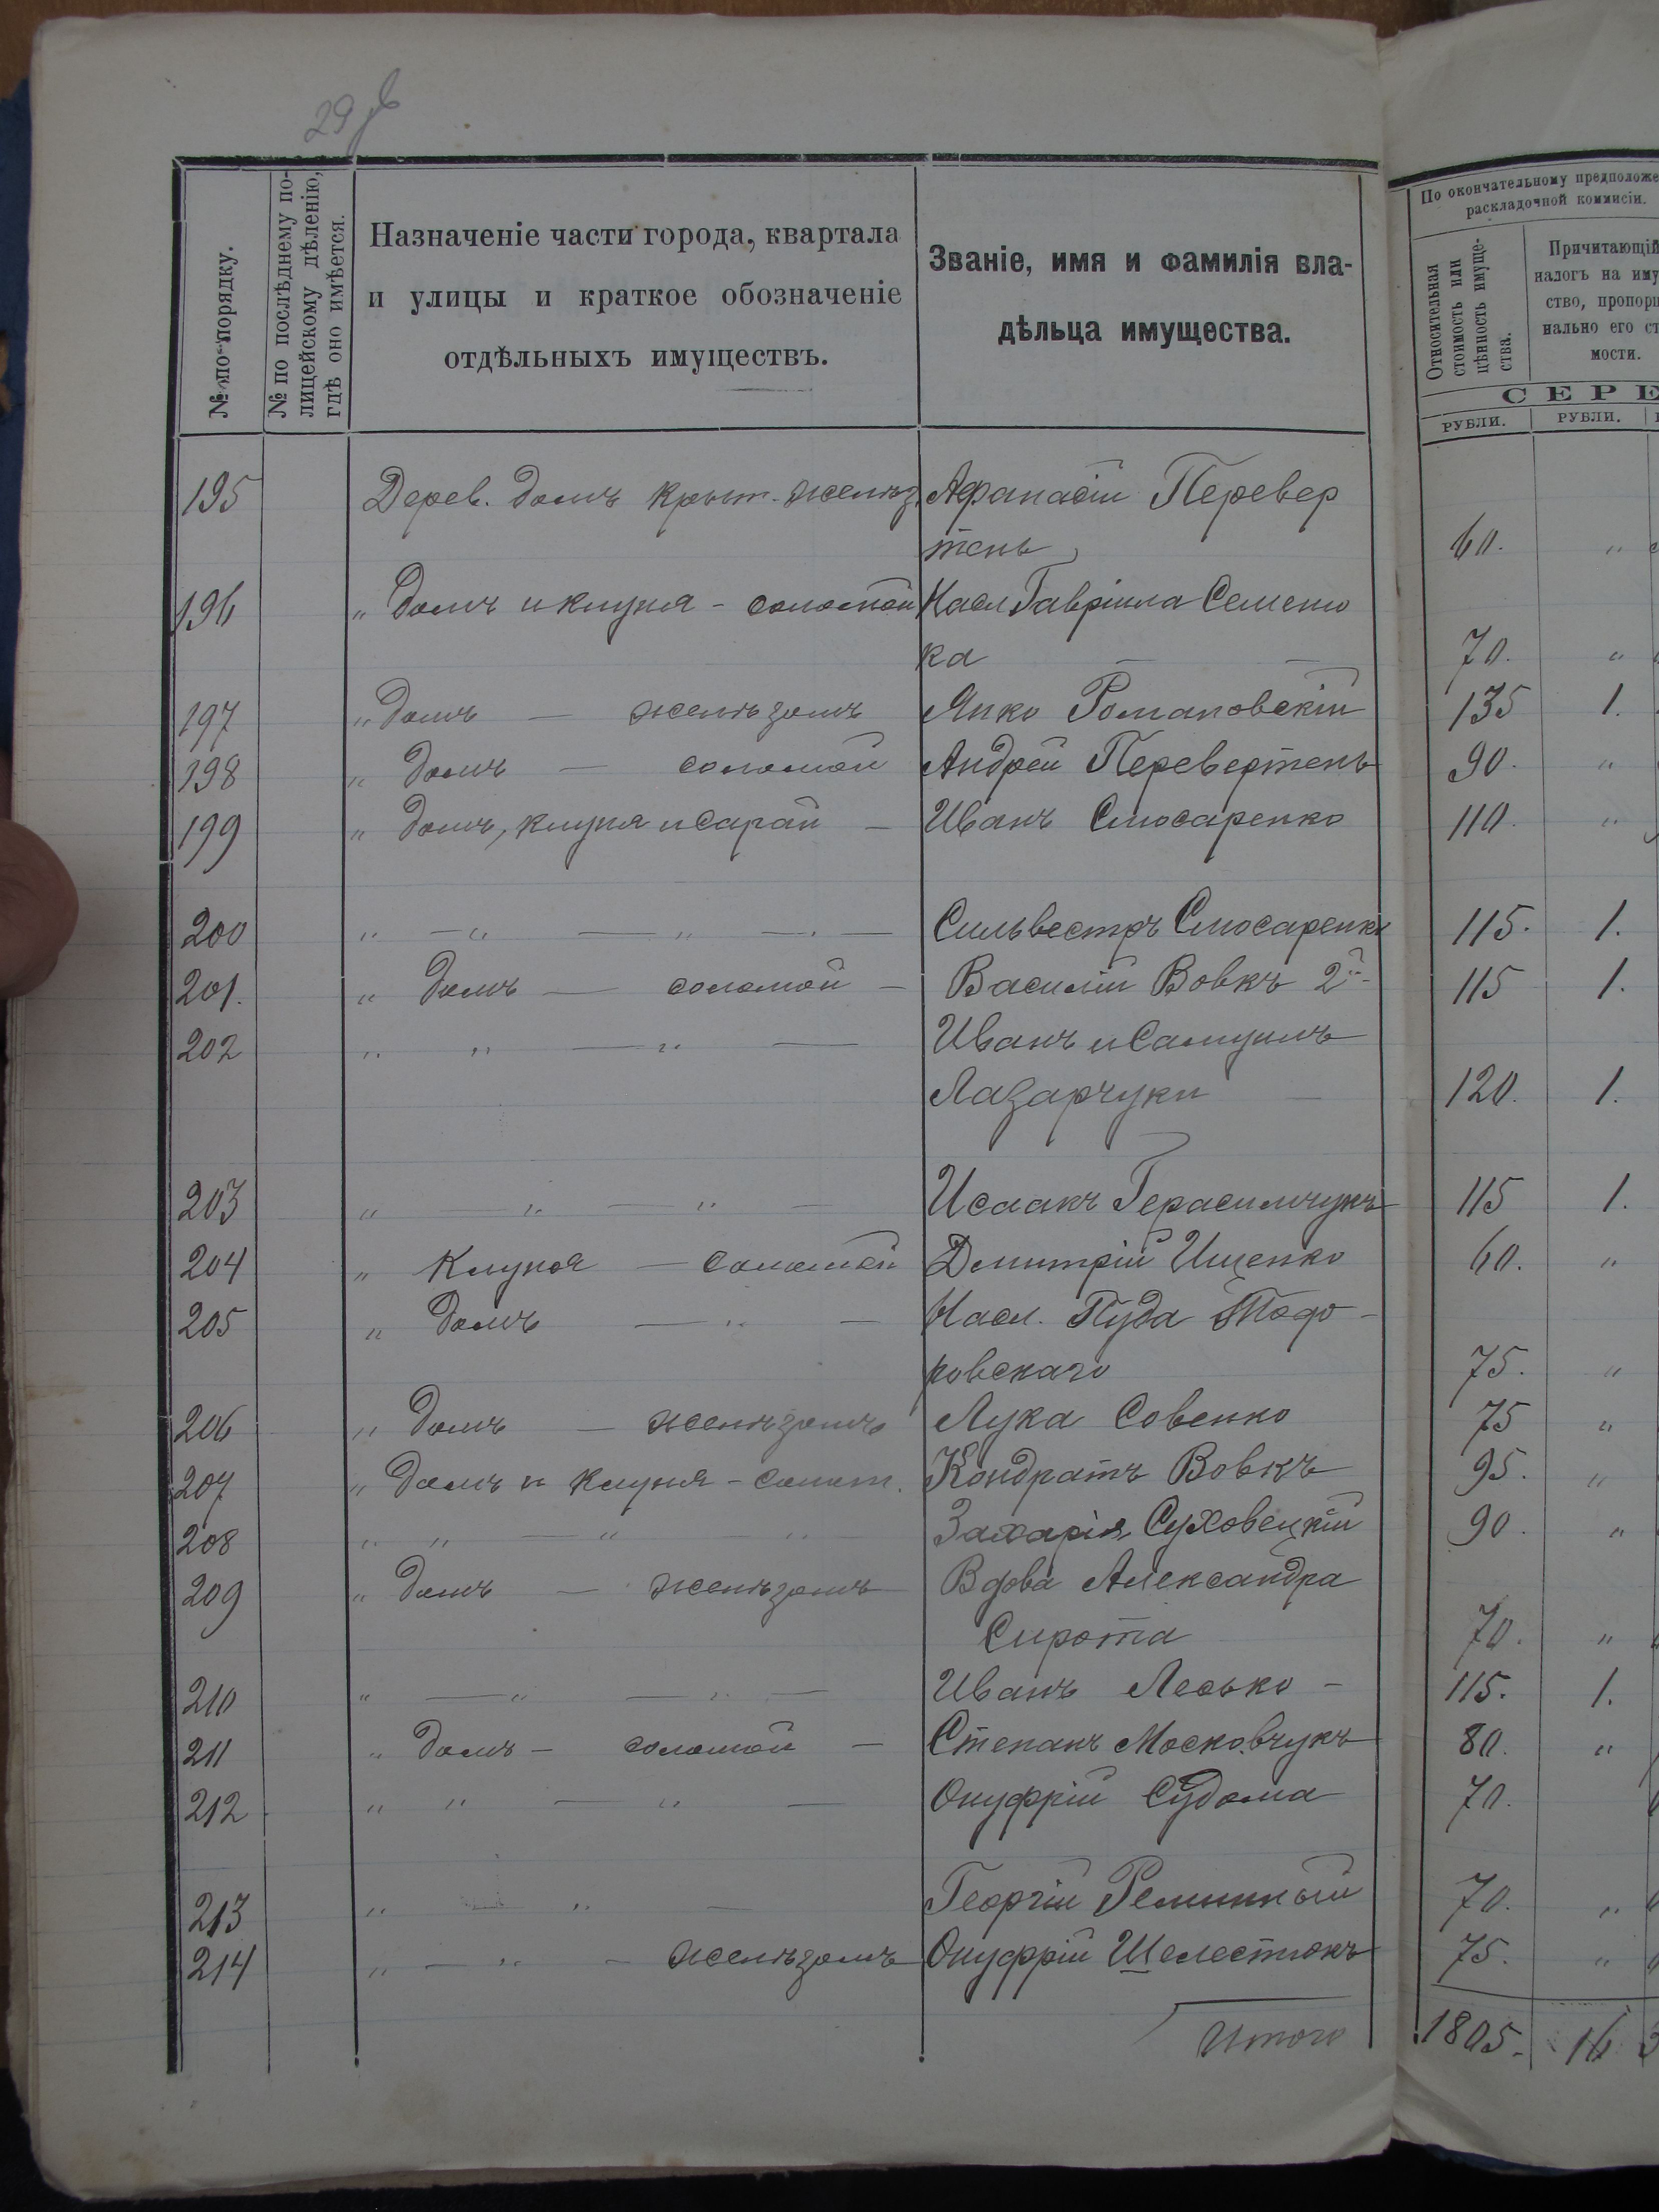 № по порядку.
№ по послѣднему по-
лицейскому дѣленію,
гдѣ оно имѣется.
Назначеніе части города, квартала
и улицы и краткое обозначеніе
отдѣльныхъ имуществъ.
Званіе, имя и фамилія вла-
дѣльца имущества.
По окончательному предположе
раскладочной коммисіи.
Относительная
стоимость или
цѣнность имуще-
ства.
Причитающій
налогъ на иму
ство, пропорц
нально его ст
мости.
СЕРЕ
РУБЛИ. РУБЛИ.
195 Дерев. домъ крыт. желѣз. Афанасій Перевер
тень 60. "
196 " домъ и клуня - соломой Насл Гавріила Семено
ка 70. "
197 " домъ — желѣзомъ Янко Романовскій 135 1.
198 " домъ — соломой Андрей Перевертень 90. "
199 " домъ, клуня и сарай — Иванъ Слюсаренко 110. "
200 " —"— —"— Сильвестръ Слюсаренко 115. 1.
201. " домъ — соломой — Василій Вовкъ 2й 115 1.
202 " " —"— Иванъ и Самуилъ
Лазарчуки 120. 1.
203 " " —"— Исаакъ Герасимчукъ 115 1.
204 " Клуня — соломой Дмитрій Ищенко 60. "
205 " домъ —"— Насл. Пуда Тодо-
ровскаго 75. "
206 " домъ — желѣзомъ Лука Совенко 75 "
207 " домъ и клуня - солом. Кондратъ Вовкъ 95. "
208 " " —"— " Захарія Суховецкій 90. "
209 " домъ — желѣзомъ Вдова Александра
Сирота 70. "
210 " —"— —"— Иванъ Лесько - 115. 1.
211 " домъ - соломой — Степанъ Московчукъ 80. "
212 " " —"— Онуфрій Судома 70.
213 " " — Георгій 70. "
214 " —"— желѣзомъ Онуфрій Шелестюкъ 75. "
Итого 1805. 16 3